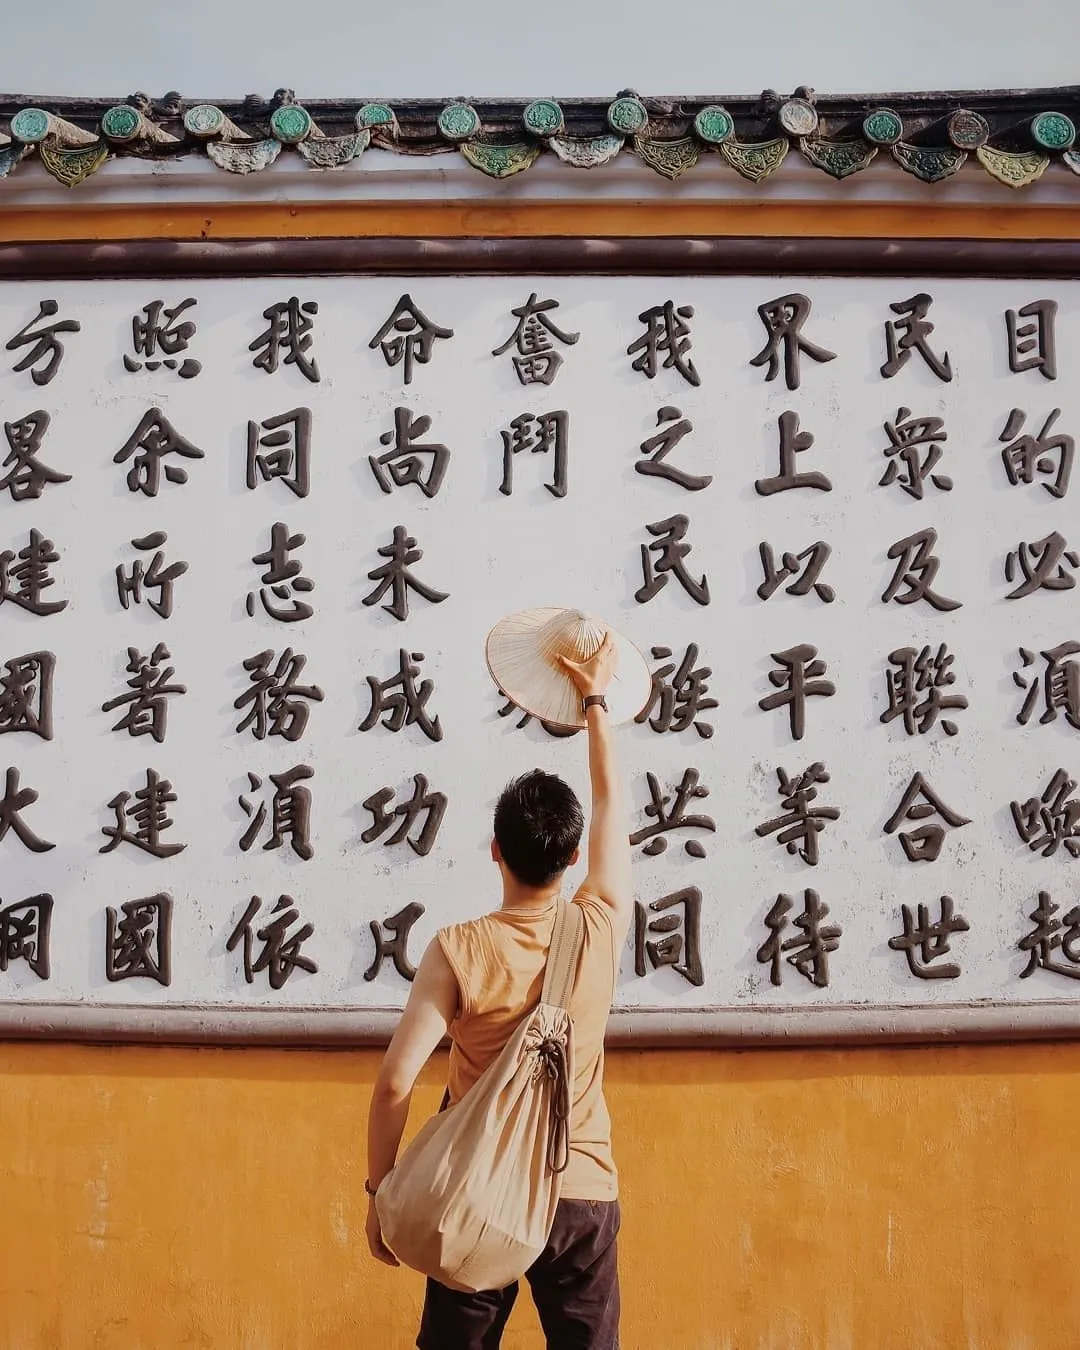 目的必湏喚起
民衆及聯合世
界上以平等待
我之民族共同
奮鬥
命尚未成功凡
我同志務湏依
照余所著建國
方畧建國大綱